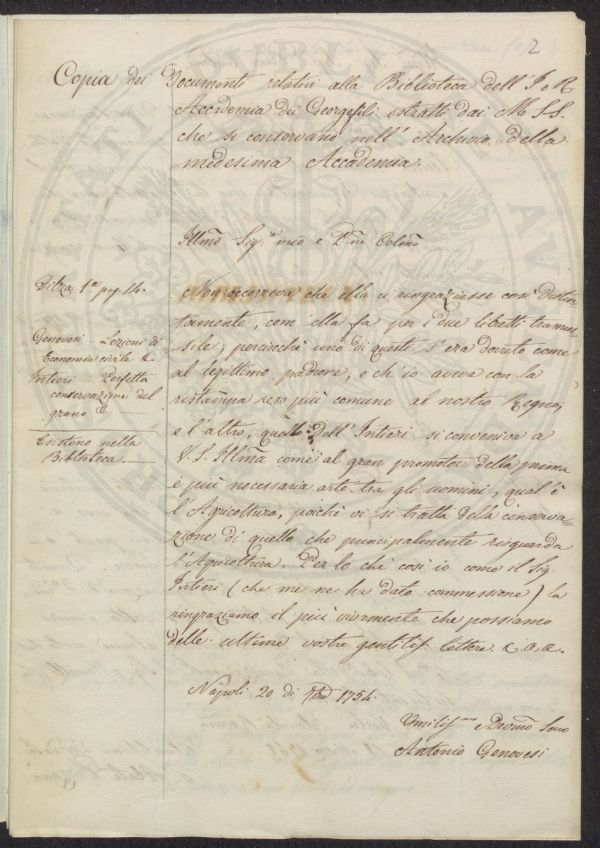 2
Copia dei Documenti relativi alla Biblioteca dell' I e R
Accademia dei Georgofili estratti dai M.S.S.
che si conservano nell' Archivio della
medesima Accademia.
Illmo Sigr mio e Pne Colmo
Filza 1a pag 14.
Genovesi Lezioni di
Economia civile &
Intieri - Perfetta
conservazione del
grano &
Esistono nella
Biblioteca
Non occorreva che ella ci ringraziasse così distin
tamente, com' ella fa per i due libretti trasmes-
sile; perciocchè uno di questi s'era dovuto come
al legittimo padrone, e ch'io aveva con la
ristampa reso più comune al nostro Regno;
e l'altro, quello dell' Intieri si conveniva a
V. S. Illma come al gran promotore della prima
e più necessaria arte tra gli uomini, qual è
l'Agricoltura, poichè vi si tratta della conserva=
zione di quello che principalmente risguarda
l'Agricoltura. Per lo chè così io come il Sig.
Intieri (che me ne ha dato commessione) la
ringraziamo il più vivamente che possiamo
delle ultime vostre gentilis. lettere &.&.&.
Napoli 20 di 7bre 1754.
Umiliss.mo e Devmo Servo
Antonio Genovesi